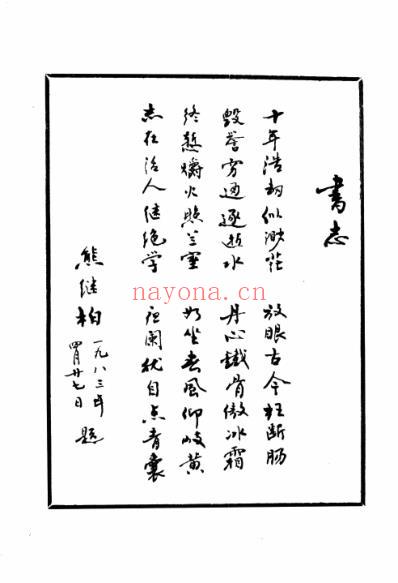 書志
十年浩劫似渺茫 放眼古今枉断肠
毁誉穷通逐逝水 丹心鐵骨傲冰霜
终爝火照兰 坐春风仰岐黄
志在活人继绝学 夜阑犹自点青囊
熊继柏 一九八三年
四月廿七日 题
nayona.cn